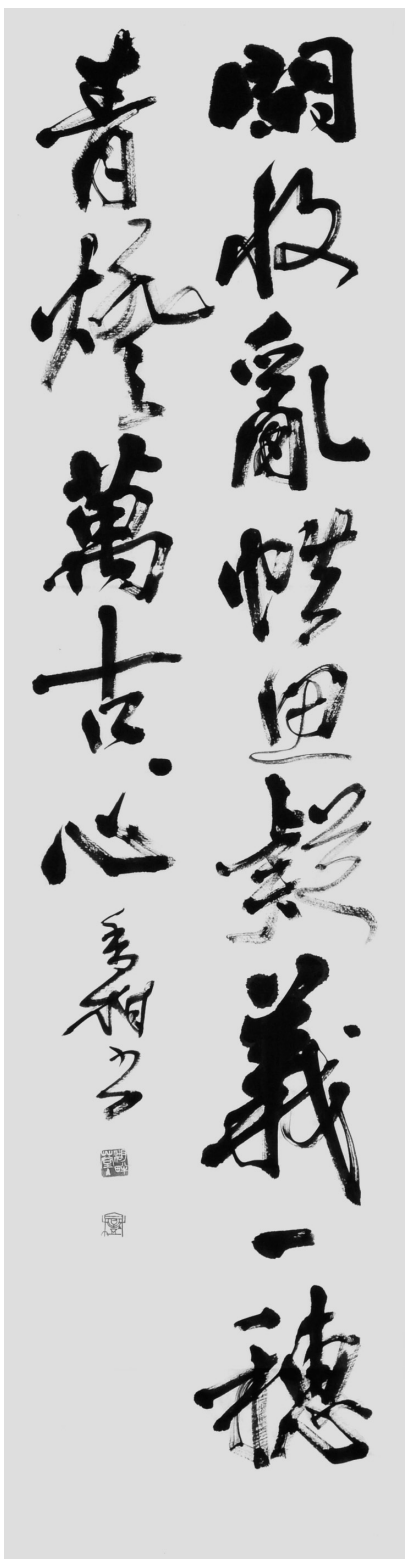 閑收亂帙思疑義一穗
青燈萬古心
書